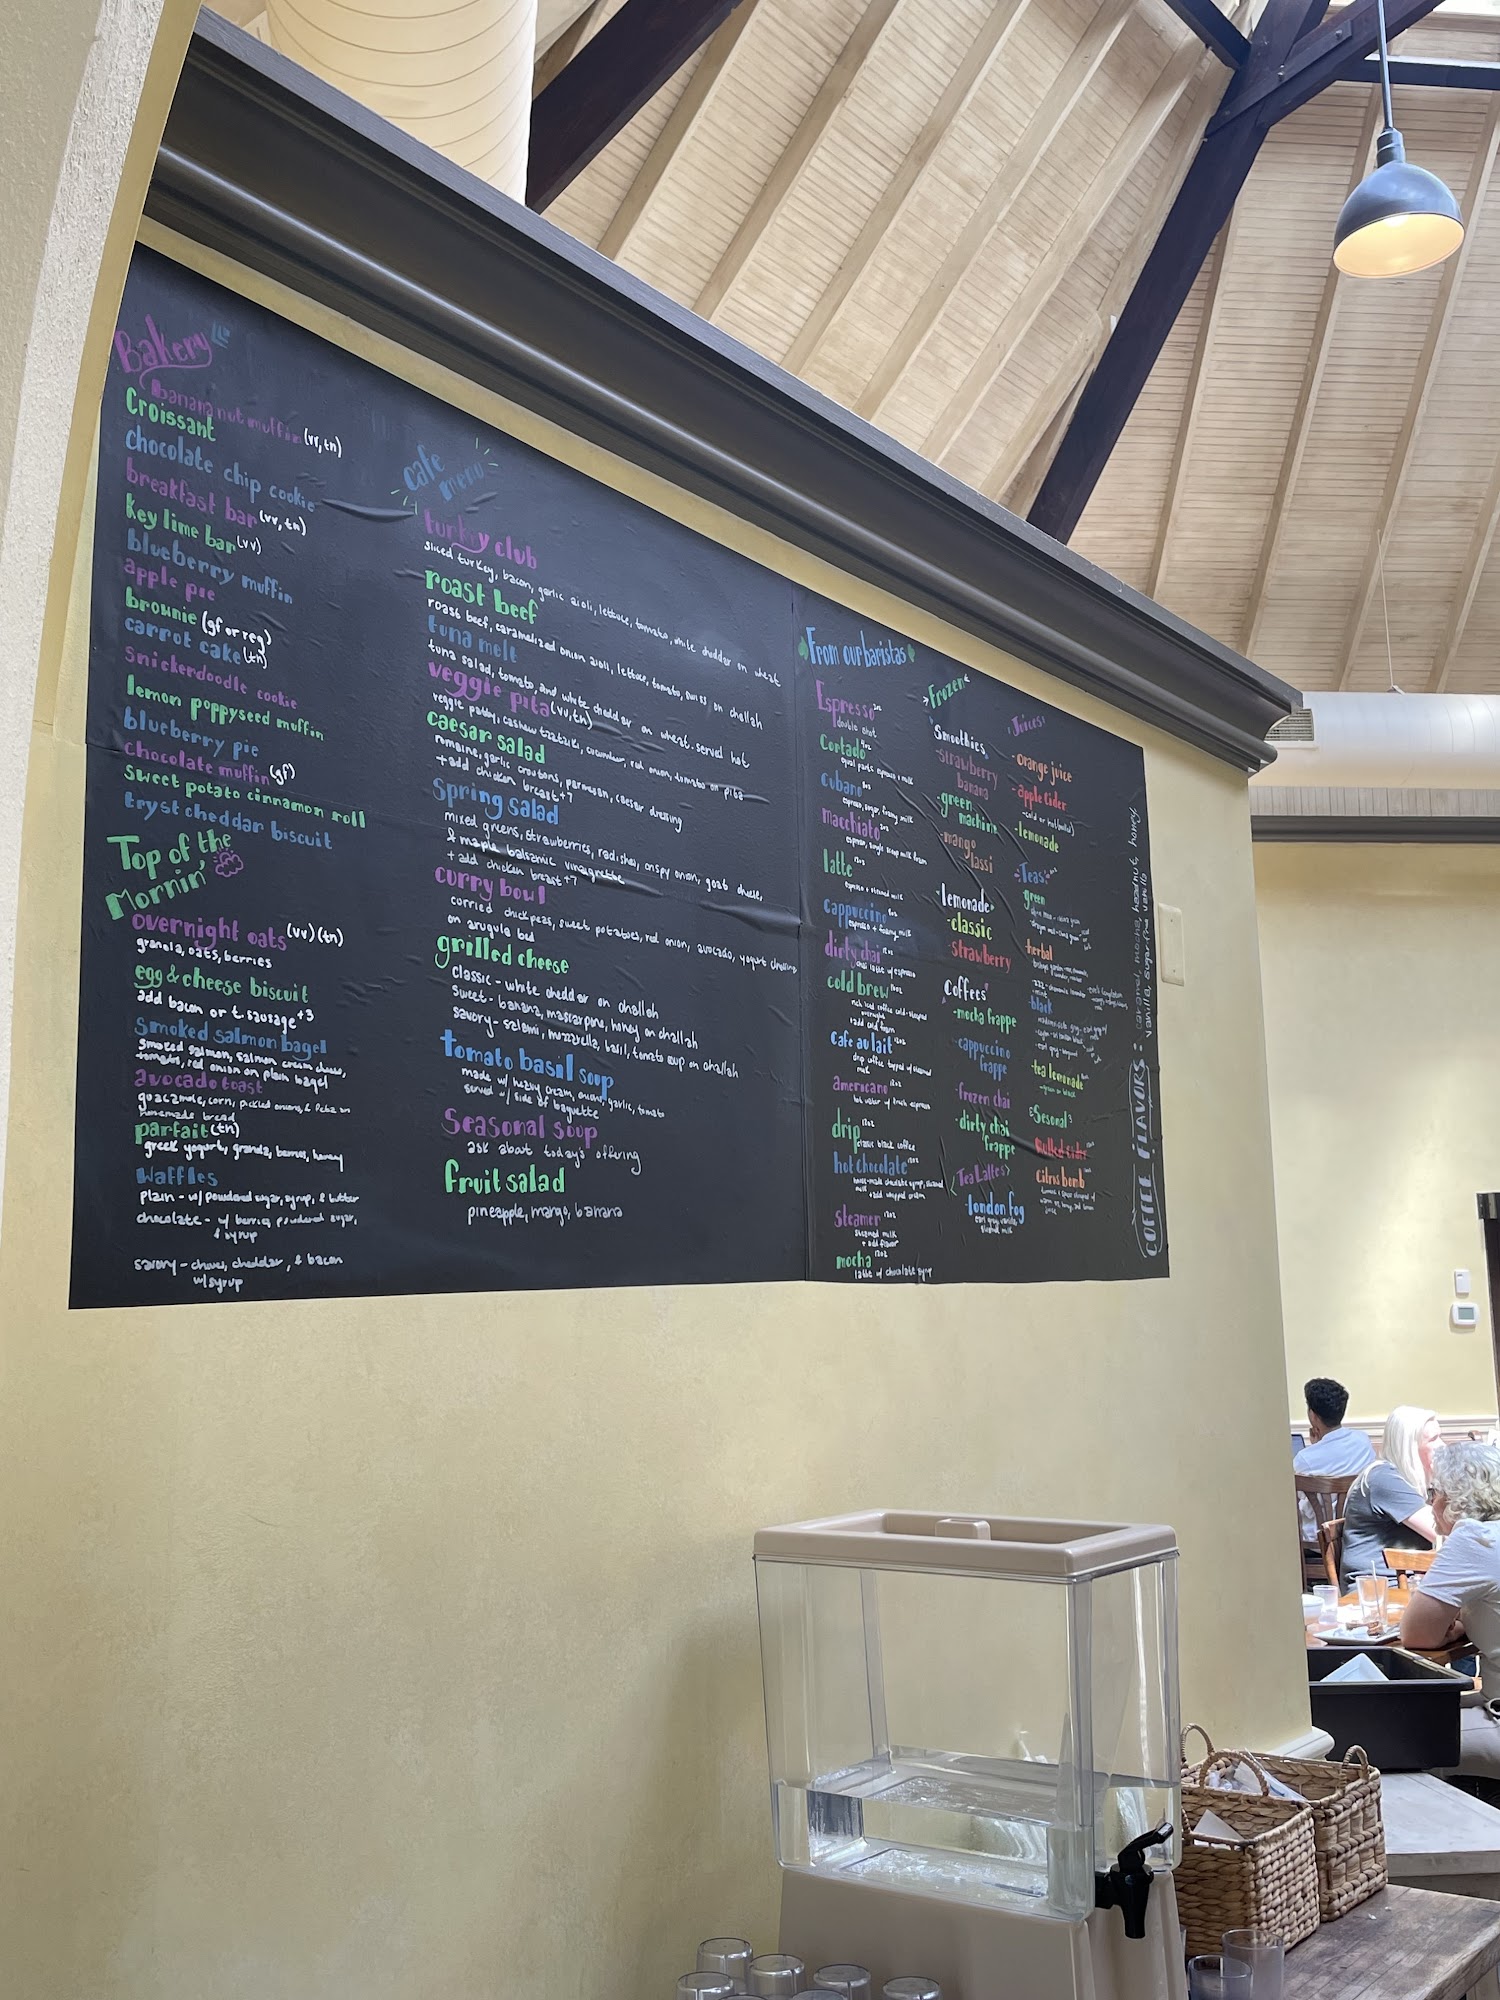 Bakery
banana nut muffin (vv, tn)
Croissant
chocolate chip cookie
breakfast bar (vv, tn)
key lime bar (vv)
blueberry muffin
apple pie
brownie (gf or reg)
carrot cake (tn)
snickerdoodle cookie
lemon poppyseed muffin
blueberry pie
chocolate muffin (gf)
sweet potato cinnamon roll
tryst cheddar biscuit
Top of the
Mornin'
overnight oats (vv) (tn)
granola, oats, berries
egg & cheese biscuit
add bacon or t. sausage +3
smoked salmon bagel
smoked salmon, salmon cream cheese,
tomato, red onion on plain bagel
avocado toast
guacamole, corn, pickled onions, & feta on
homemade bread
parfait (tn)
greek yogurt, granola, berries, honey
Waffles
plain - w/ powdered sugar, syrup, & butter
chocolate - w/ berries, powdered sugar,
& syrup
savory - chives, cheddar, & bacon
w/ syrup
cafe
menu
turkey club
sliced turkey, bacon, garlic aioli, lettuce, tomato, white cheddar on wheat
roast beef
roast beef, caramelized onion aioli, lettuce, tomato, swiss on challah
tuna melt
tuna salad, tomato, and white cheddar on wheat-served hot
veggie pita (vv, tn)
veggie patty, cashew tzatziki, cucumber, red onion, tomato on pita
caesar salad
romaine, garlic croutons, parmesan, caesar dressing
+ add chicken breast +7
Spring salad
mixed greens, strawberries, radishes, crispy onion, goat cheese,
& maple balsamic vinaigrette
+ add chicken breast +7
curry bowl
curried chickpeas, sweet potatoes, red onion, avocado, yogurt dressing
on arugula bed
grilled cheese
classic - white cheddar on challah
sweet - banana, mascarpone, honey on challah
savory - salami, mozzarella, basil, tomato soup on challah
tomato basil soup
made w/ heavy cream, onions, garlic, tomato
served w/ side of baguette
Seasonal soup
ask about today's offering
fruit salad
pineapple, mango, banana
From our baristas
Espresso
double shot
Cortado
equal parts espresso & milk
cubano
espresso, sugar, foamy milk
macchiato
latte
espresso & steamed milk
cappuccino
espresso + foamy milk
dirty chai
chai latte w/ espresso
cold brew
cafe au lait
americano 12oz
hot water w/ fresh espresso
drip 12oz
classic black coffee
hot chocolate
+ add whipped cream
steamer 12oz
steamed milk
+ add flavor
mocha 12oz
latte w/ chocolate syrup
Frozen
Smoothies
-strawberry
banana
-green
machine
-mango
lassi
lemonade
-classic
-strawberry
Coffees
-mocha frappe
-cappuccino
frappe
-frozen chai
-dirty chai
frappe
Tea Lattes
-london fog
Juices
-orange juice
-apple cider
-lemonade
Teas
green
herbal
black
-tea lemonade
-green or black
Sesonal
Mulled Cider
Citrus bomb
COFFEE FLAVORS: caramel, mocha, hazelnut, honey,
vanilla, sugar free vanilla